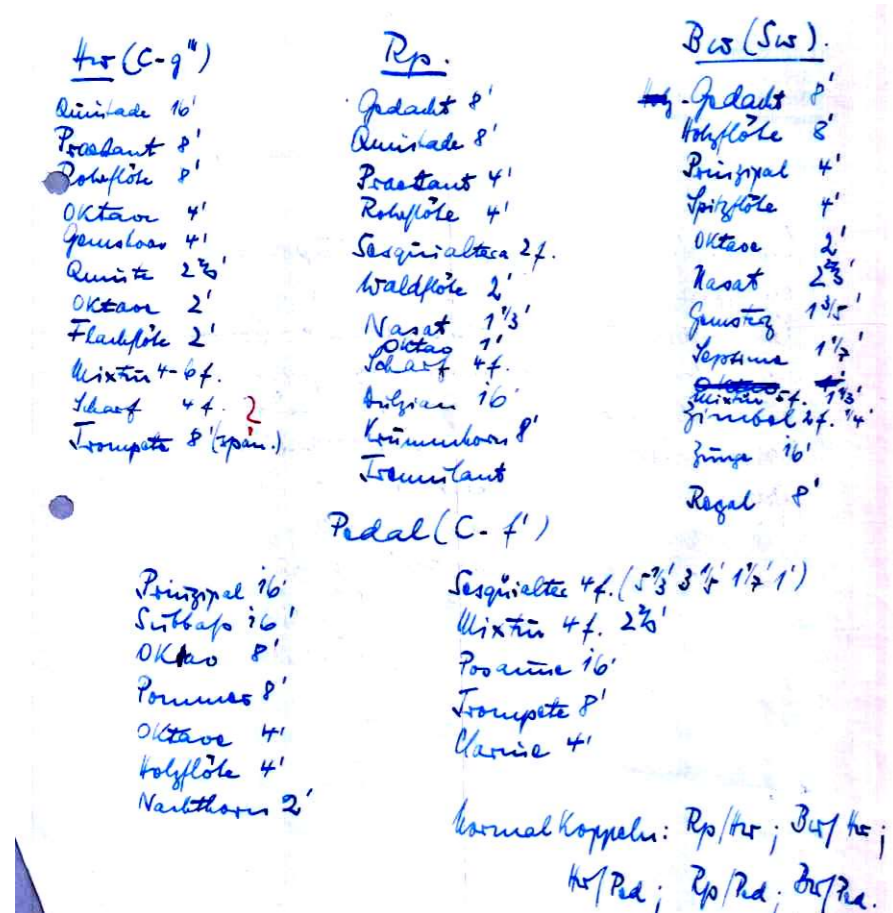 Hw (C-g''')
Quintade 16'
Praestant 8'
Rohrflöte 8'
Oktave 4'
Gemshorn 4'
Quinte 2 2/3'
Oktave 2'
Flachflöte 2'
Mixtur 4-6 f.
Scharf 4 f.
Trompete 8' (span.)
Rp.
Gedackt 8'
Quintade 8'
Praestant 4'
Rohrflöte 4'
Sesquialtera 2 f.
Waldflöte 2'
Nasat 1 1/3'
Oktav 1'
Scharf 4 f.
Dulzian 16'
Krummhorn 8'
Tremulant
Bw (Sw).
Holz-Gedackt 8'
Holzflöte 8'
Prinzipal 4'
Spitzflöte 4'
Oktave 2'
Nasat 2 2/3'
Gemsterz 1 3/5'
Septime 1 1/7'
Oktav 1'
Mixtur 5 f. 1 1/3'
Zimbel 2 f. 1/4'
Zunge 16'
Regal 8'
Pedal (C-f')
Prinzipal 16'
Subbaß 16'
Oktav 8'
Pommer 8'
Oktave 4'
Holzflöte 4'
Nachthorn 2'
Sesquialter 4 f. (5 1/3' 3 1/5' 1 1/7' 1')
Mixtur 4 f. 2 2/3'
Posaune 16'
Trompete 8'
Clarine 4'
Normalkoppeln: Rp/Hw; Bw/Hw;
Hw/Ped; Rp/Ped; Bw/Ped.